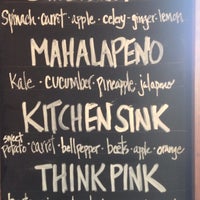 Spinach · carrot · apple · celery · ginger · lemon
MAHALAPENO
Kale · cucumber · pineapple · jalapeno
KITCHEN SINK
sweet potato · carrot · bell pepper · beets · apple · orange
THINK PINK